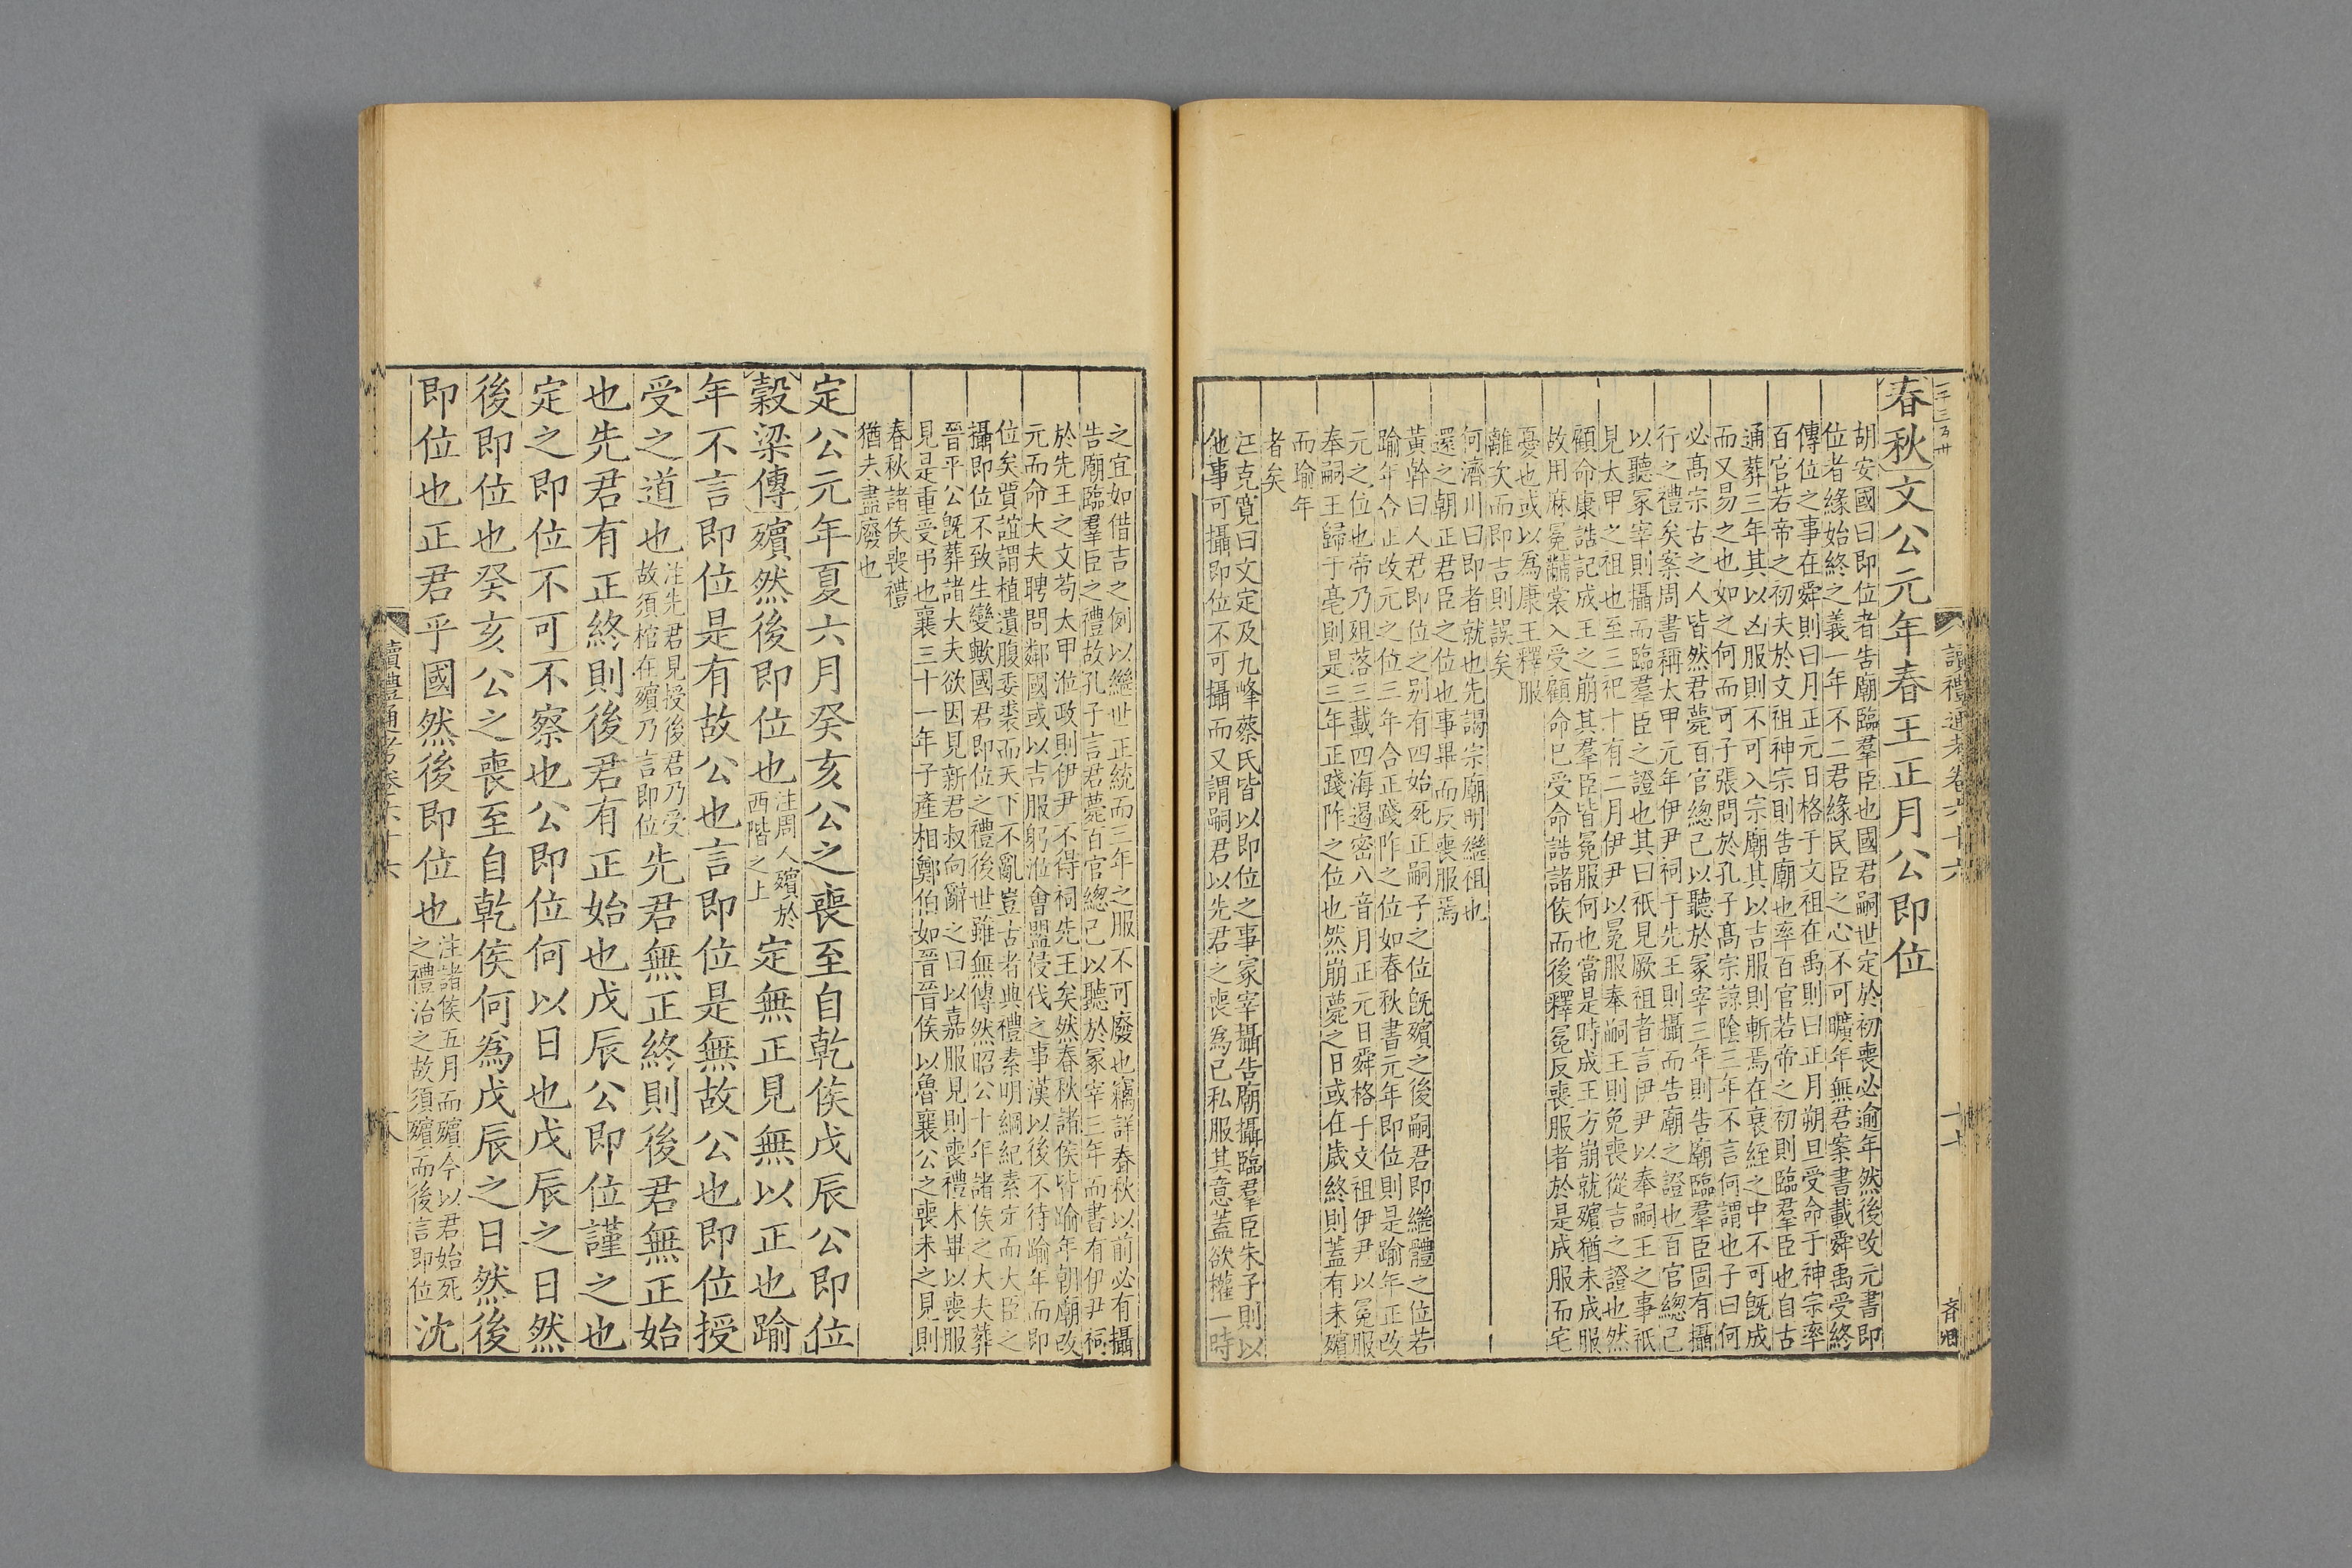 春秋文公元年春王正月公即位
胡安國曰即位者告廟臨羣臣也國君嗣世定於初喪必逾年然後改元書即
位者緣始終之義一年不二君緣民臣之心不可曠年無君案書載舜禹受終
傳位之事在舜則曰月正元日格于文祖在禹則曰正月朔旦受命于神宗率
百官若帝之初夫於文祖神宗則告廟也率百官若帝之初則臨羣臣也自古
通葬三年其以凶服則不可入宗廟其以吉服則斬焉在衰絰之中不可旣成
而又易之也如之何而可子張問於孔子高宗諒陰三年不言何謂也子曰何
必高宗古之人皆然君薨百官總己以聽於冢宰三年則告廟臨羣臣固有攝
行之禮矣案周書稱大甲元年伊尹祠于先王則攝而告廟之證也百官總己
以聽冢宰則攝而臨羣臣之證也其曰祇見厥祖者言伊尹以奉嗣王之事祇
見太甲之祖也至三祀十有二月伊尹以冕服奉嗣王則免喪從吉之證也然
顧命康誥記成王之崩其羣臣皆冕服何也當是時成王方崩就殯猶未成服
故用麻冕黼裳入受顧命已受命誥諸侯而後釋冕反喪服者於是成服而宅
憂也或以為康王釋服
離次而即吉則誤矣
何濟川曰即者就也先謁宗廟明繼祖也
還之朝正君臣之位也事畢而反喪服焉
黃幹曰人君即位之别有四始死正嗣子之位旣殯之後嗣君即繼體之位若
踰年合正改元之位三年合正踐阼之位如春秋書元年即位則是踰年正改
元之位也帝乃殂落三載四海遏密八音月正元日舜格于文祖伊尹以冕服
奉嗣王歸于亳則是三年正踐阼之位也然崩薨之日或在歲終則蓋有未殯
而踰年
者矣
汪克寬曰文定及九峰蔡氏皆以即位之事冢宰攝告廟攝臨羣臣朱子則以
他事可攝即位不可攝而又謂嗣君以先君之喪為己私服其意蓋欲權一時
之宜如借吉之例以繼世正統而三年之服不可廢也竊詳春秋以前必有攝
告廟臨羣臣之禮故孔子言君薨百官總己以聽於冢宰三年而書有伊尹祠
於先王之文苟太甲涖政則伊尹不得祠先王矣然春秋諸侯皆踰年朝廟改
元而命大夫聘問鄰國或以吉服躬涖會盟侵伐之事漢以後不待踰年而即
位矣賈誼謂植遺腹委裘而天下不亂豈古者典禮素明綱紀素定而大臣之
攝即位不致生變歟國君即位之禮後世雖無傳然昭公十年諸侯之大夫葬
晉平公旣葬諸大夫欲因見新君叔向辭之曰以嘉服見則喪禮未畢以喪服
見是重受弔也襄三十一年子產相鄭伯如晉晉侯以魯襄公之喪未之見則
春秋諸侯喪禮
猶夫盡廢也
定公元年夏六月癸亥公之喪至自乾侯戊辰公即位
穀梁傳殯然後即位也注周人殯於西階之上定無正見無以正也踰
年不言即位是有故公也言即位是無故公也即位授
受之道也注先君見授後君乃受故須棺在殯乃言即位先君無正終則後君無正始
也先君有正終則後君有正始也戊辰公即位謹之也
定之即位不可不察也公即位何以日也戊辰之日然
後即位也癸亥公之喪至自乾侯何為戊辰之日然後
即位也正君乎國然後即位也注諸侯五月而殯今以君始死之禮治之故須殯而後言即位沈
讀禮通考卷六十六